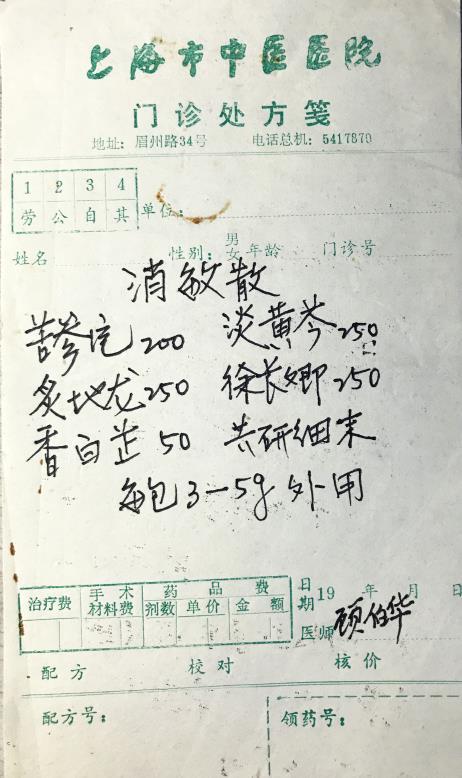 上海市中医医院
门诊处方笺
地址：眉州路34号 电话总机：5417879
1 2 3 4
劳 公 自 其 单位：
姓名 性别：男女 年龄 门诊号
消敏散
苦参 200 淡黄芩 250
炙地龙 250 徐长卿 250
香白芷 50 共研细末
每包 3-5g 外用
治疗费 手术材料费 药品费 日期 19 年 月 日
剂数 单价 金额 医师 顾伯华
配方 校对 核价
配方号： 领药号：